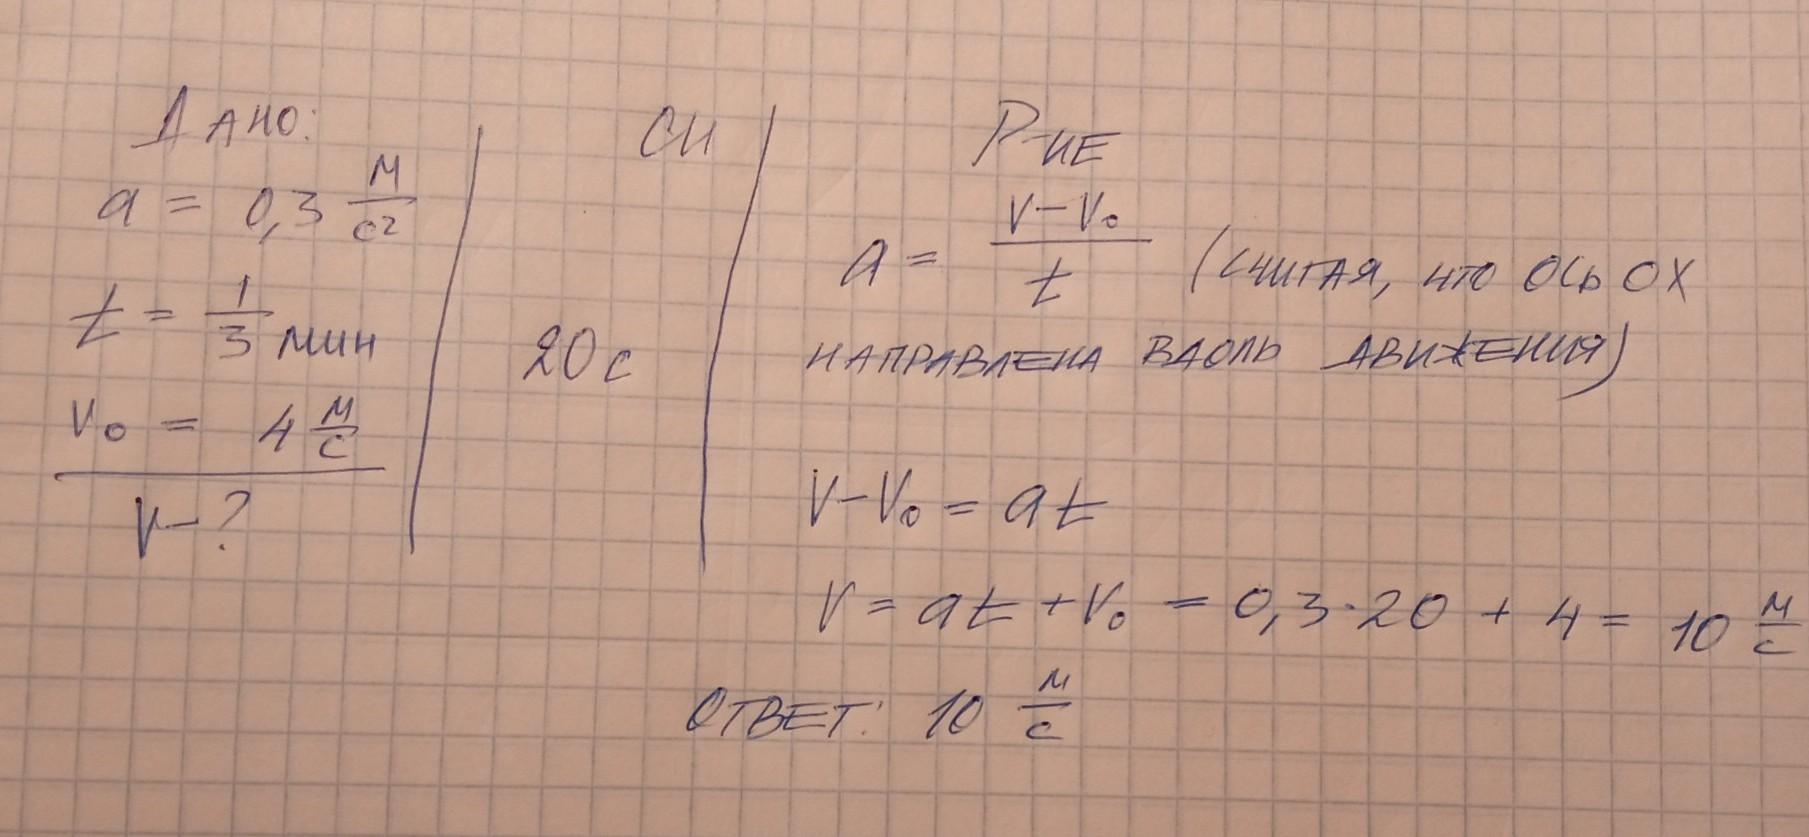 Дано:
a = 0,3 м/с²
t = 1/3 мин
V₀ = 4 м/с
V - ?
СИ
20 с
Р-ие
a = (V - V₀)/t (считая, что ось OX
направлена вдоль движения)
V - V₀ = at
V = at + V₀ = 0,3 · 20 + 4 = 10 м/с
Ответ: 10 м/с